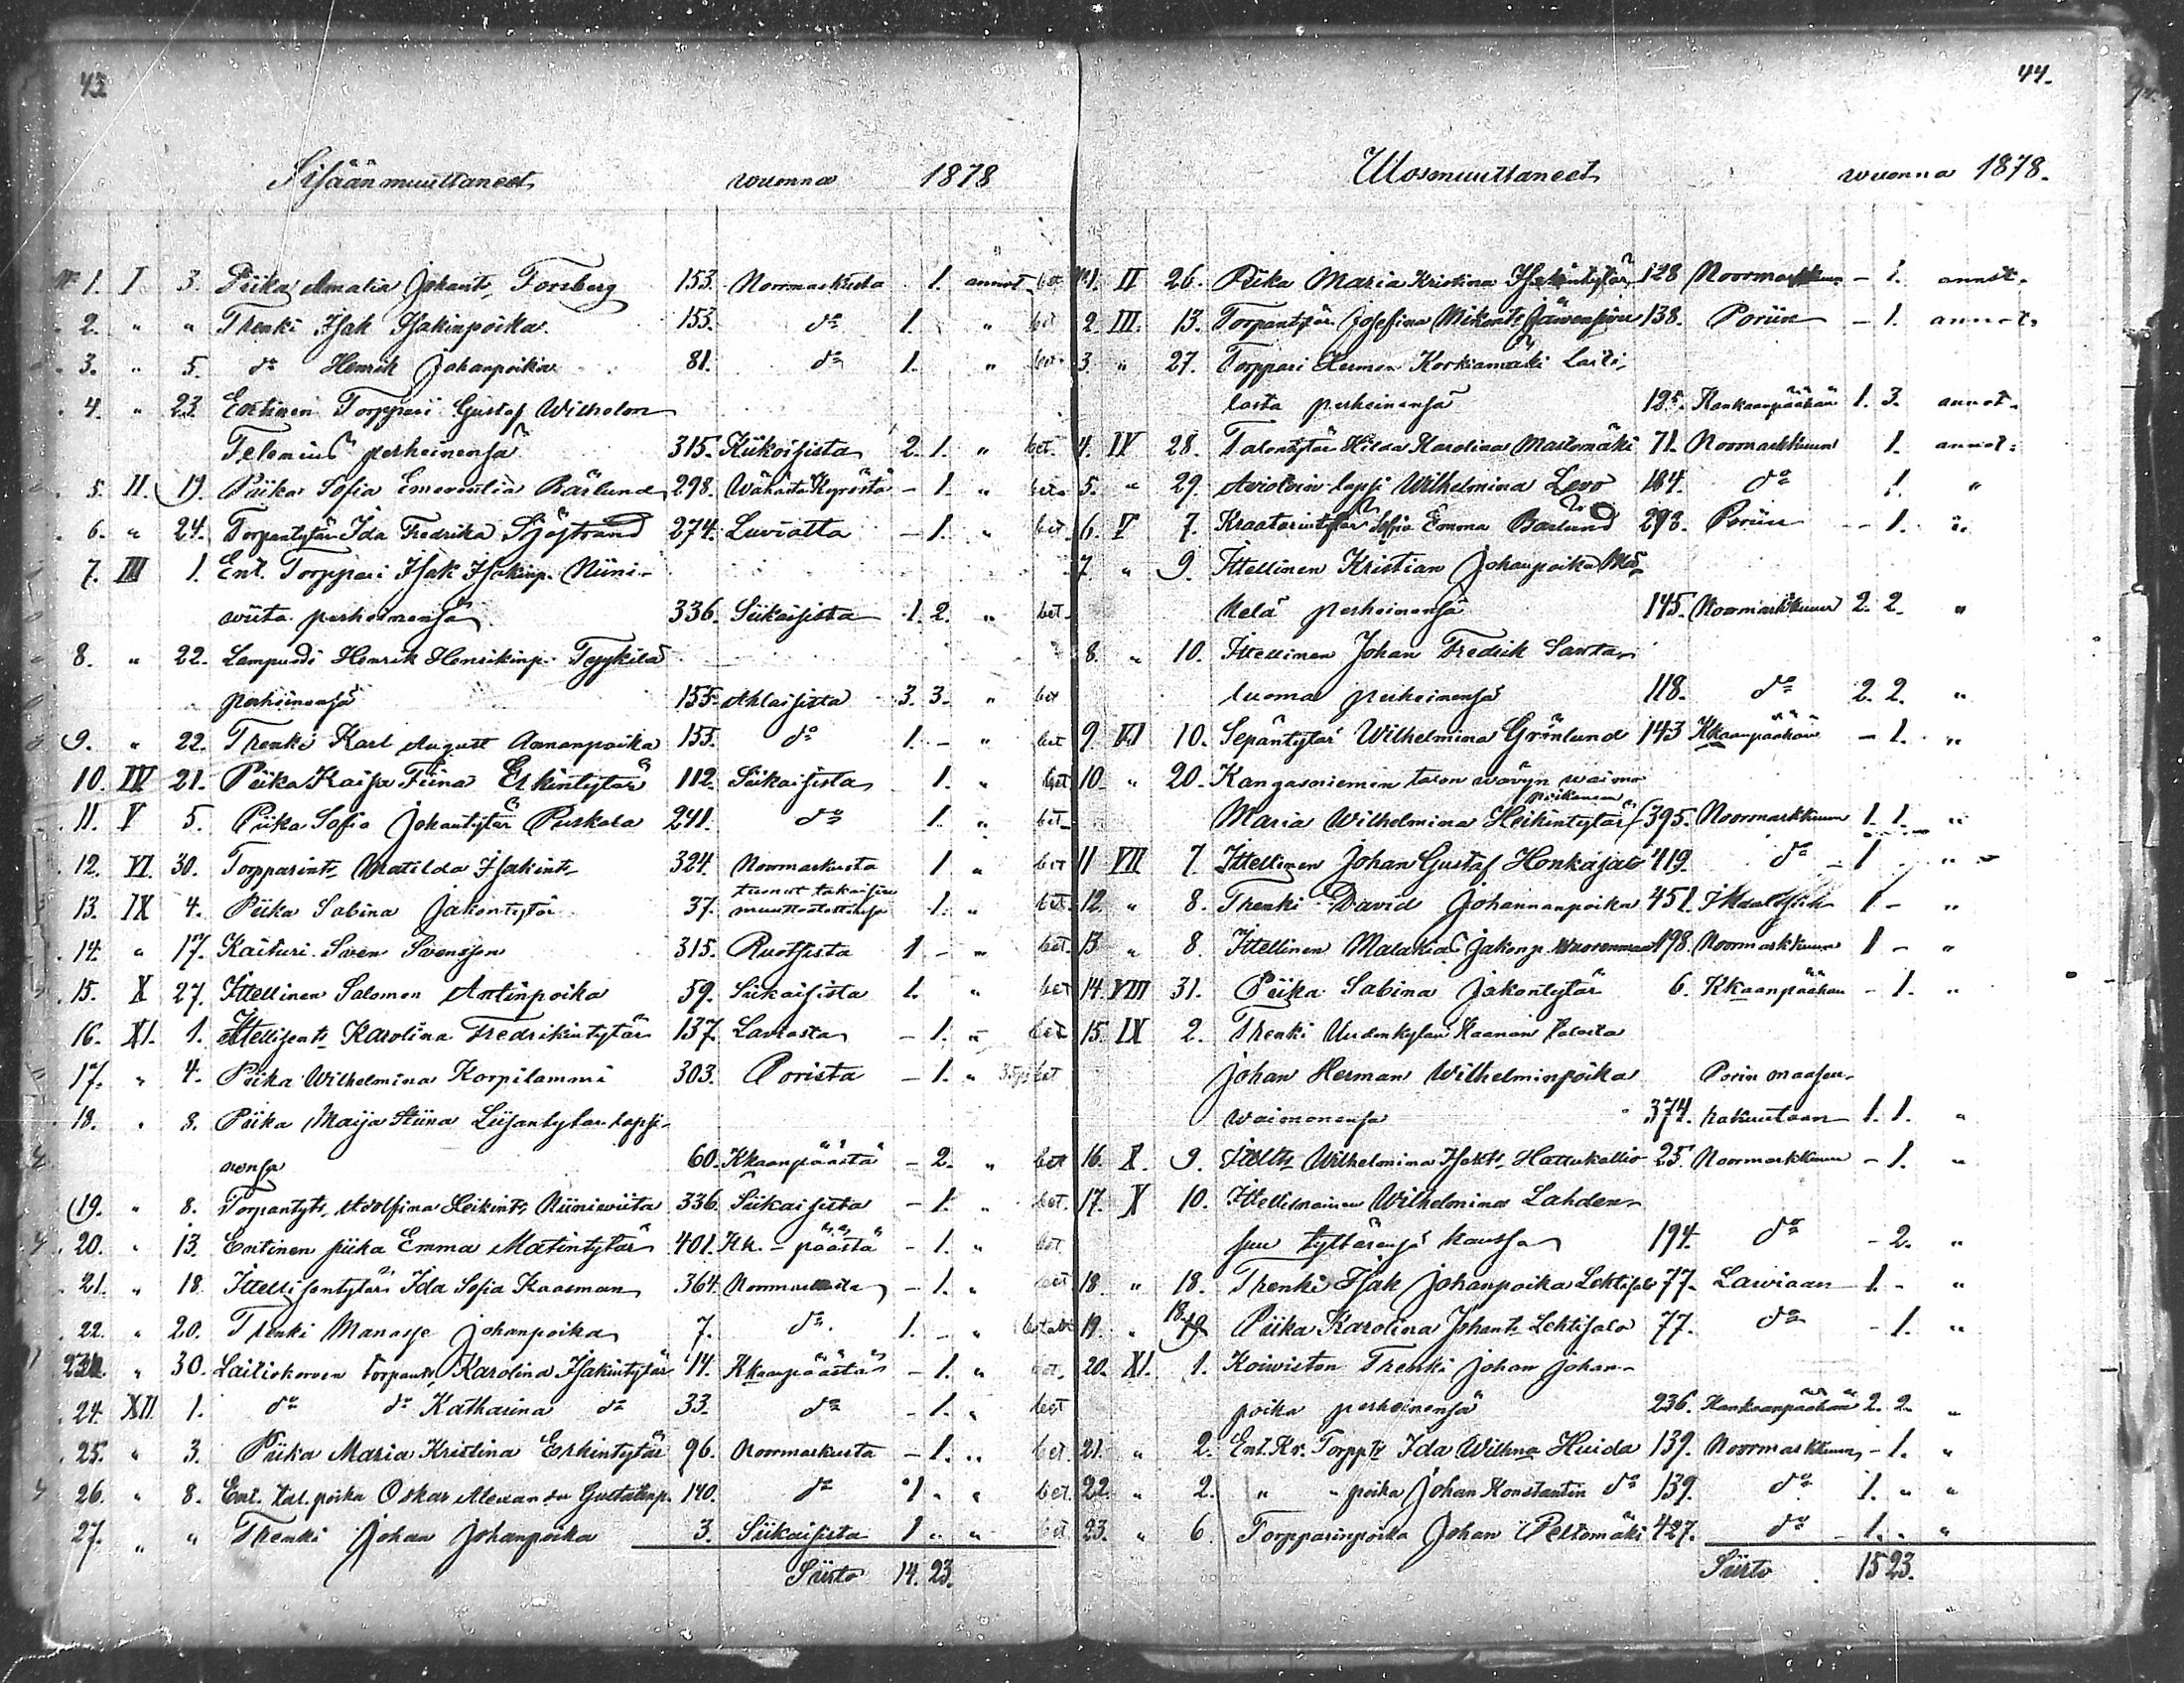 43.
Sisäänmuuttaneet wuonna 1878
No 1. I 3. Piika Amalia Johants. Forsberg 153. Noormarkusta 1. annot. bet
2. " " Trenki Isak Isakinpoika. 153. do 1. " bet
3. " 5. do Henrik Johanpoika 81. do 1. " bet
4. " 23 Entinen Torppari Gustaf Wilhelm
Felenius perheinensä 315. Kiikoisista 2. 1. " bet.
5. II. 19. Piika Sofia Emerentia Bärlund 298. Wähästä Kyröstä - 1. " bet.
6. " 24. Torpantytär Ida Fredrika Sjöstrand 274. Luviatta - 1. " bet.
7. III 1. Ent. Torppari Isak Isakinp. Niini-
wiita perheinensä 336. Siikaisista 1. 2. " bet.
8. " 22. Lampuodi Henrik Henrikinp. Tyykilä
perheinensä 155. Ahlaisista 3. 3. " bet
9. " 22. Trenki Karl August Aamanpoika 155. do 1. - " bet
10. IV 21. Piika Kaisa Fiina Erkintytär 112. Siikaisista 1. " bet
11. V 5. Piika Sofia Johantytär Puskala 241. do 1. " bet
12. VI. 30. Torpparints. Matilda Isakints. 324. Noormarkusta 1 " bet
13. IX 4. Piika Sabina Jakontytär 37. tuonut takaisin
muuttotodistuksen 1. " bet.
14. " 17. Kaituri Sven Svensson 315. Ruotsista 1 - " bet.
15. X 27. Ittellinen Salomon Antinpoika 59. Siikaisista 1. " bet
16. XI. 1. Ittellisents. Karolina Fredrikintytär 137. Laviasta - 1. " bet
17. " 4. Piika Wilhelmina Korpilammi 303. Porista - 1. " bet
18. " 8. Piika Maija Stiina Liisantytär lapsi-
nensa 60. Kkaanpäästä - 2. " bet
19. " 8. Torpantyts. Adolfina Heikints. Niiniwiita 336. Siikaisista - 1. " bet.
20. " 13. Entinen piika Emma Matintytär 401. Kk.-päästä - 1. " bet.
21. " 18. Ittellisentytär Ida Sofia Kaasman 364. Noormarkusta - 1. " bet
22. " 20. Trenki Manasse Johanpoika 7. do. 1. - "
23. " 30. Lailiokorven torpants. Karolina Isakintytär 14. Kkaanpäästä - 1. " bet.
24. XII 1. do do Katharina do 33. do - 1. " bet
25. " 3. Piika Maria Kristina Erkintytär 96. Noormarkusta - 1. " bet.
26. " 8. Ent. tal. poika Oskar Alexander Gustafinp. 140. do 1 " " bet.
27. " " Trenki Johan Johanpoika 3. Siikaisista 1 " " bet
Siirto 14. 23.
44.
Ulosmuuttaneet wuonna 1878.
No 1. II 26. Piika Maria Kristina Isakintytär 128 Noormarkkuun - 1. annot.
2. III. 13. Torpantytär Josefina Mikonts. Jäwensivu 138. Poriin - 1. annot.
3 " 27. Torppari Herman Korkiamäki Laili-
lasta perheinensä 125. Kankaanpäähän 1. 3. annot.
4. IV 28. Talontytär Hilda Karolina Mastomäki 71. Noormarkkuun 1. annot.
5. " 29. Aviotoin lapsi Wilhelmina Levo 184. do 1. "
6. V 7. Kraatarintytär Sofia Emma Bärlund 293. Poriin - 1. "
7 " 9. Ittellinen Kristian Johanpoika
kelä perheinensä 145. Noormarkkuun 2. 2. "
8. " 10. Ittellinen Johan Fredrik Santa-
luoma perheinensä 118. do 2. 2. "
9 VI 10. Sepäntytär Wilhelmina Grönlund 143 Kkaanpäähän - 1. "
10. " 20. Kangasniemen talon wäwyn waimo
Maria Wilhelmina Heikintytär poikansa 395. Noormarkkuun 1. 1. "
11 VII 7. Ittellinen Johan Gustaf Honkajat 419. do - 1 "
12. " 8. Trenki David Johannanpoika 451. Ikaalisiin 1 - "
13 " 8. Ittellinen Malakias Jakonp. Wuorenmaa 198. Noormarkkuun 1 - "
14. VIII 31. Piika Sabina Jakontytär 6. Kkaanpäähän - 1. "
15 IX 2. Trenki Uudenkylän Haanan talosta
Johan Herman Wilhelminpoika Porin maaseu-
waimonensa 374. rakuntaan 1. 1. "
16. X. 9. Ittellts. Wilhelmina Isakts. Hattukallio 25. Noormarkkuun - 1. "
17. X 10. Ittellinainen Wilhelmina Lahden-
suu tyttärensä kanssa 194. do - 2. "
18 " 18. Trenki Isak Johanpoika Lehtisalo 77. Lawiaan 1. - "
19. " 18. Piika Karolina Johants. Lehtisalo 77. do - 1. "
20. XI. 1. Koiwiston Trenki Johan Johan-
poika perheinensä 236. Kankaanpäähän 2. 2. "
21. " 2. Ent. Kr. Torppts Ida Wilhna Huida 139. Noormarkkuun - 1. "
22. " 2. " " poika Johan Konstantin do 139. do 1. " "
23. " 6. Torpparinpoika Johan Peltomäki 427. do - 1. " "
Siirto 15 23.